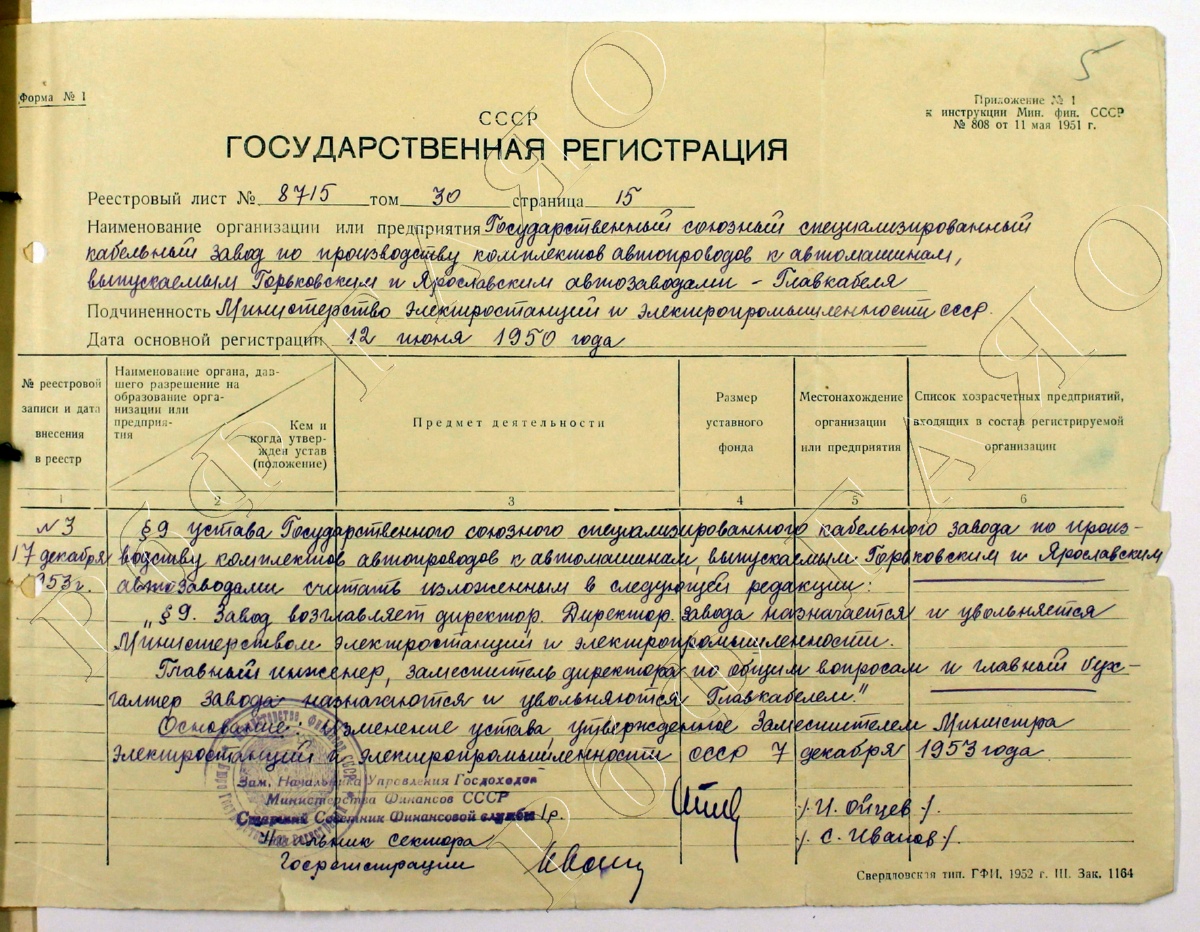 5
Форма № 1
Приложение № 1
к инструкции Мин. фин. СССР
№ 808 от 11 мая 1951 г.
СССР
ГОСУДАРСТВЕННАЯ РЕГИСТРАЦИЯ
Реестровый лист № 8715 том 30 страница 15
Наименование организации или предприятия Государственный союзный специализированный
кабельный завод по производству комплектов автопроводов к автомашинам,
выпускаемым Горьковским и Ярославским автозаводами – Главкабеля
Подчиненность Министерство электростанций и электропромышленности СССР.
Дата основной регистрации 12 июня 1950 года
№ реестровой записи и дата внесения в реестр
Наименование органа, давшего разрешение на образование организации или предприятия
Кем и когда утвержден устав (положение)
Предмет деятельности
Размер уставного фонда
Местонахождение организации или предприятия
Список хозрасчетных предприятий, входящих в состав регистрируемой организации
1 2 3 4 5 6
№3 § 9 устава Государственного союзного специализированного кабельного завода по произ-
17 декабря водству комплектов автопроводов к автомашинам, выпускаемым Горьковским и Ярославским
1953г. автозаводами считать изложенным в следующей редакции:
„§ 9. Завод возглавляет директор. Директор завода назначается и увольняется
Министерством электростанций и электропромышленности.
Главный инженер, заместитель директора по общим вопросам и главный бух-
галтер завода назначаются и увольняются Главкабелем"
Основание: изменение устава, утвержденное Заместителем Министра
электростанций и электропромышленности СССР 7 декабря 1953 года
Зам. Начальника Управления Госдоходов
Министерства Финансов СССР
Старший Советник Финансовой службы 1 р.
/И. Ойцев/.
Начальник сектора
/С. Иванов/.
Госрегистрации
Свердловская тип. ГФИ. 1952 г. III. Зак. 1164